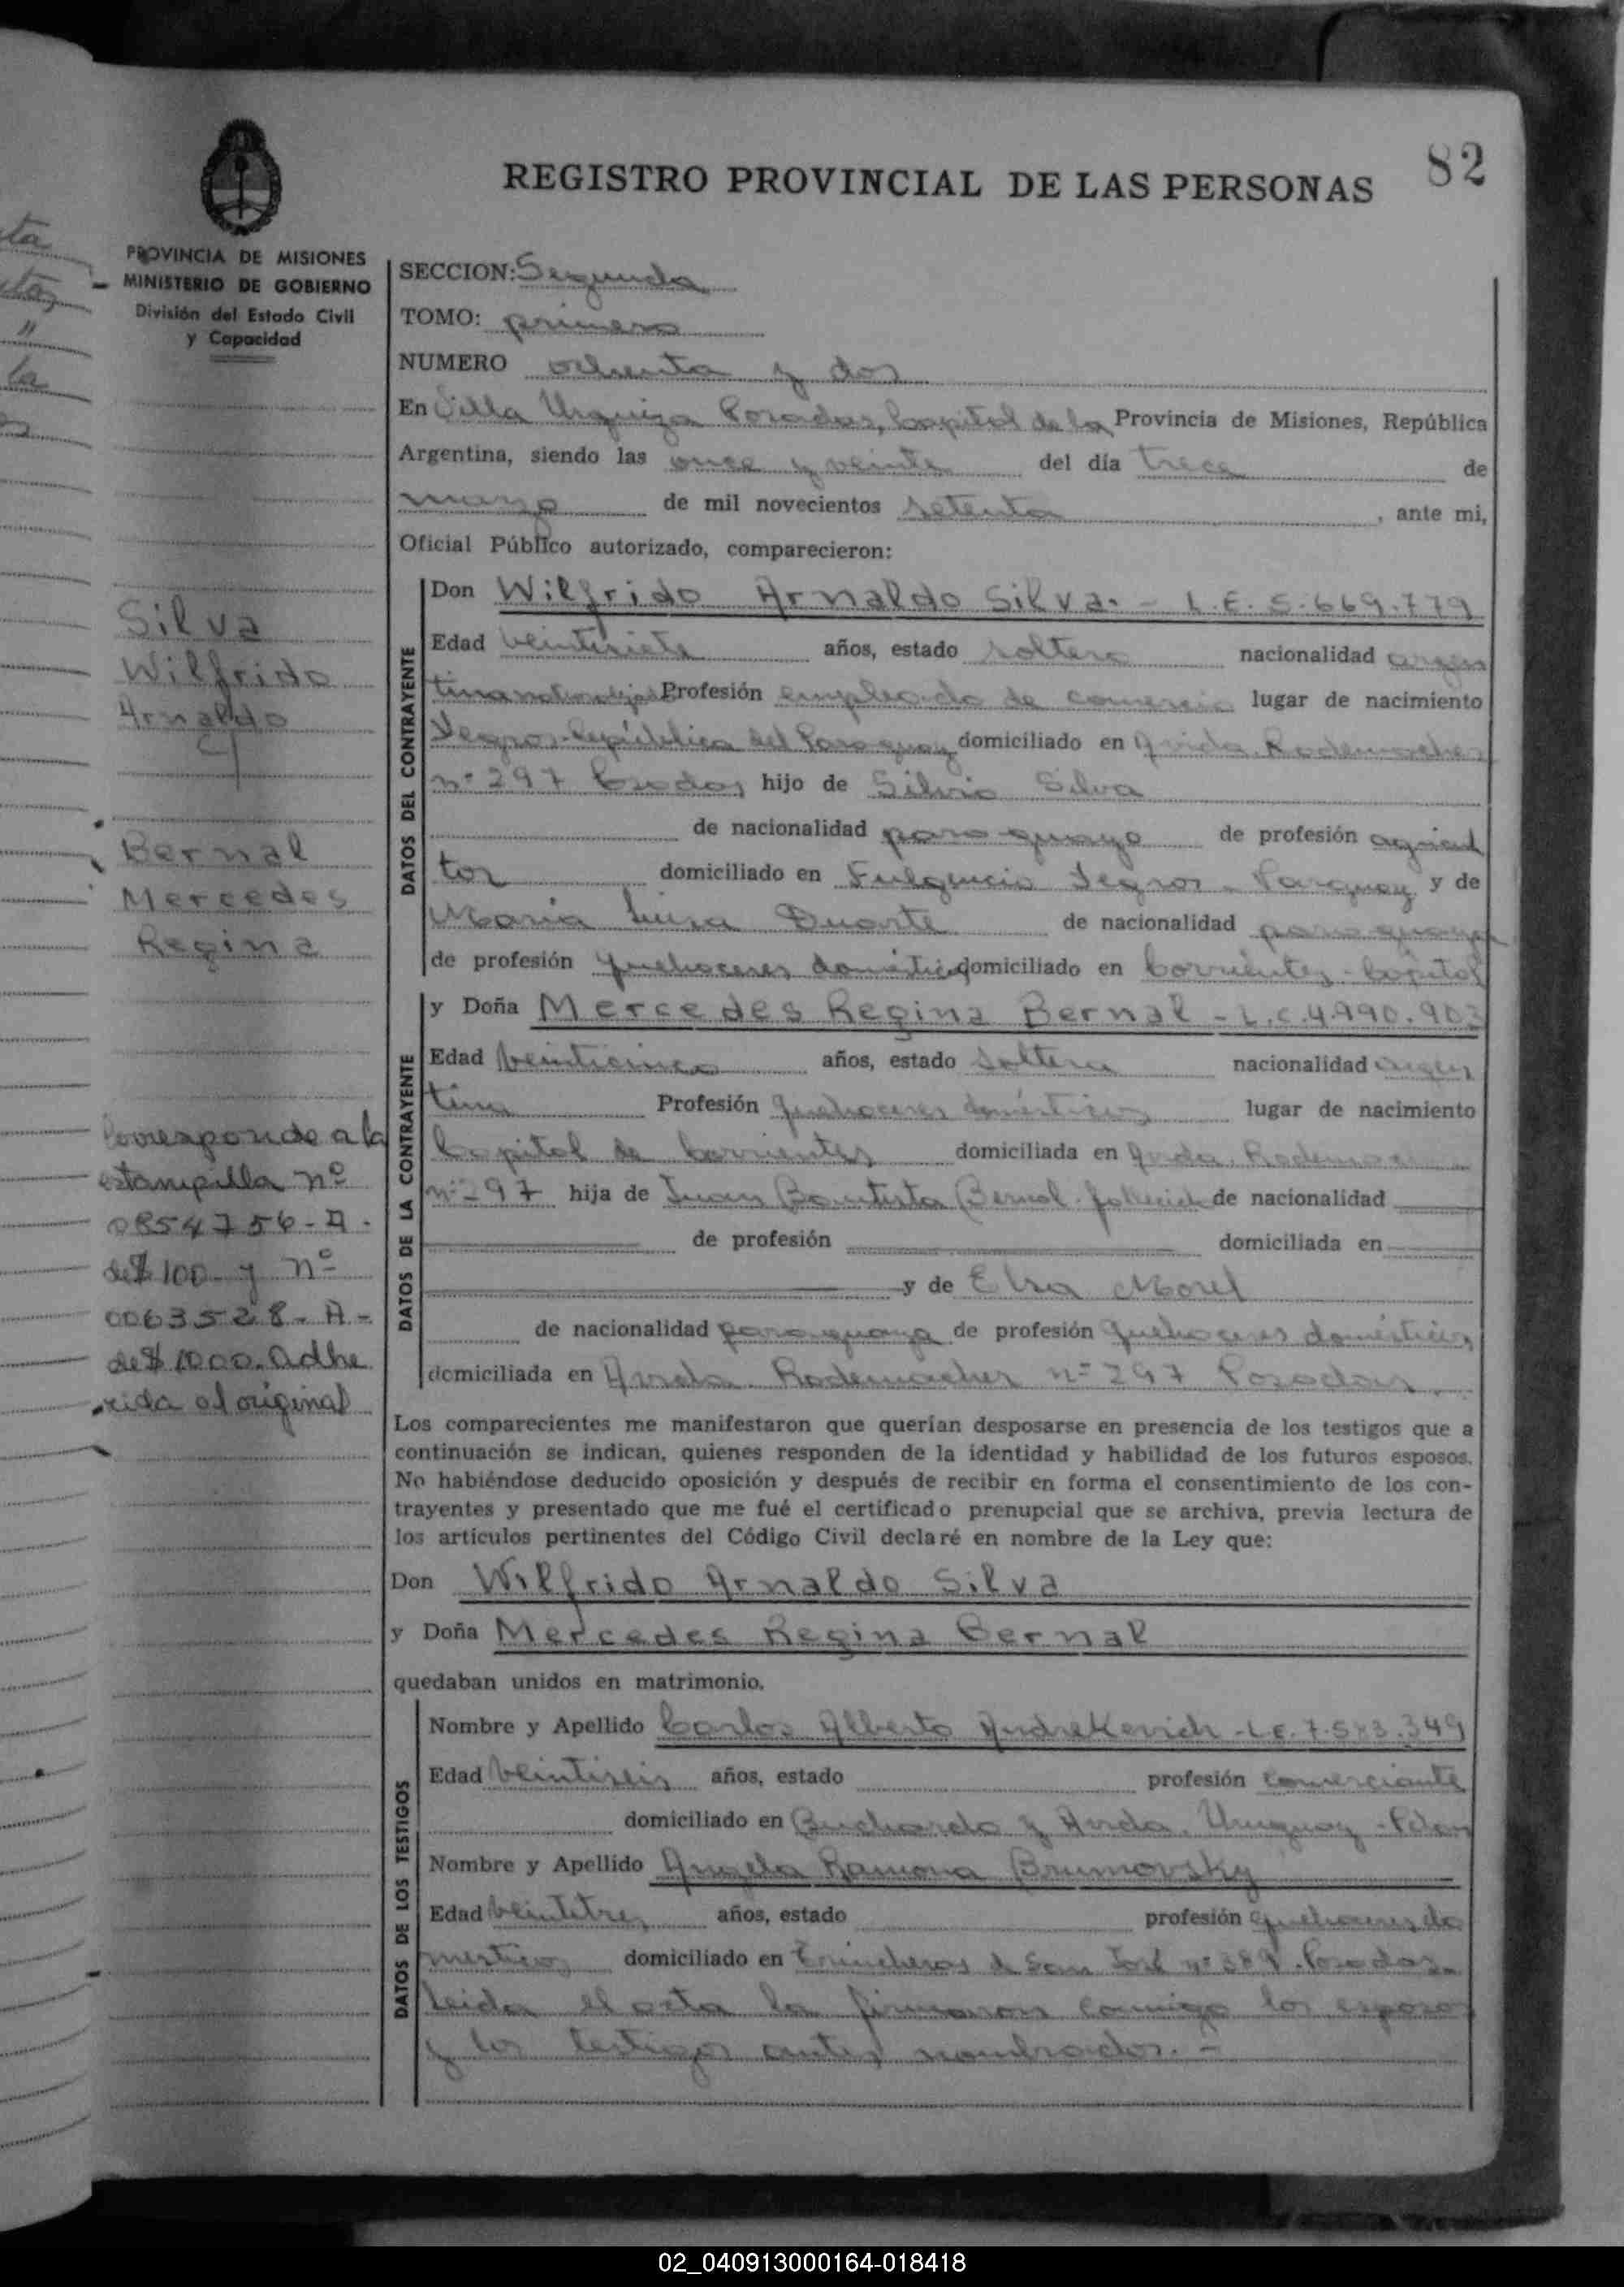 82
REGISTRO PROVINCIAL DE LAS PERSONAS
PROVINCIA DE MISIONES
MINISTERIO DE GOBIERNO
División del Estado Civil
y Capacidad
SECCION: Segunda
TOMO: primero
NUMERO ochenta y dos
En Villa Urquiza Posadas, Capital de la Provincia de Misiones, República
Argentina, siendo las once y veinte del día trece de
marzo de mil novecientos setenta, ante mi,
Oficial Público autorizado, comparecieron:
Silva
Wilfrido
Arnaldo
y
Bernal
Mercedes
Regina
Corresponde a la
estampilla nº
0854756-A.
de $ 100 y nº
0063528-A-
de $ 1000. adhe
rida al original
DATOS DEL CONTRAYENTE
Don Wilfrido Arnaldo Silva. - L.E. 5.669.779
Edad veintisiete años, estado soltero nacionalidad argen
tina Profesión empleado de comercio lugar de nacimiento
Yegros-República del Paraguay domiciliado en Avda. Rademacher
nº 297 Posadas hijo de Silvio Silva
de nacionalidad paraguayo de profesión agricul
tor domiciliado en Fulgencio Yegros - Paraguay y de
María Luisa Duarte de nacionalidad paraguaya
de profesión quehaceres domésticos domiciliado en Corrientes - Capital
DATOS DE LA CONTRAYENTE
y Doña Mercedes Regina Bernal - L.C. 4.990.903
Edad veinticinco años, estado soltera nacionalidad argen
tina Profesión quehaceres domésticos lugar de nacimiento
Capital de Corrientes domiciliada en Avda. Rademacher
nº 297 hija de Juan Bautista Bernal - fallecido de nacionalidad
de profesión domiciliada en
y de Elsa Morel
de nacionalidad paraguaya de profesión quehaceres domésticos
domiciliada en Avda. Rademacher nº 297 Posadas.
Los comparecientes me manifestaron que querían desposarse en presencia de los testigos que a
continuación se indican, quienes responden de la identidad y habilidad de los futuros esposos.
No habiéndose deducido oposición y después de recibir en forma el consentimiento de los con-
trayentes y presentado que me fué el certificado prenupcial que se archiva, previa lectura de
los artículos pertinentes del Código Civil declaré en nombre de la Ley que:
Don Wilfrido Arnaldo Silva
y Doña Mercedes Regina Bernal
quedaban unidos en matrimonio.
DATOS DE LOS TESTIGOS
Nombre y Apellido Carlos Alberto Andrekevich - L.E. 7.583.349
Edad veintiseis años, estado profesión comerciante
domiciliado en Buchardo y Avda. Uruguay - Pdas
Nombre y Apellido Angela Ramona Brumovsky
Edad veintitres años, estado profesión quehaceres do
mesticos domiciliado en Trincheras de San José nº 389 - Posadas.
Leida el acta la firmaron conmigo los esposos
y los testigos antes nombrados. -
02_040913000164-018418